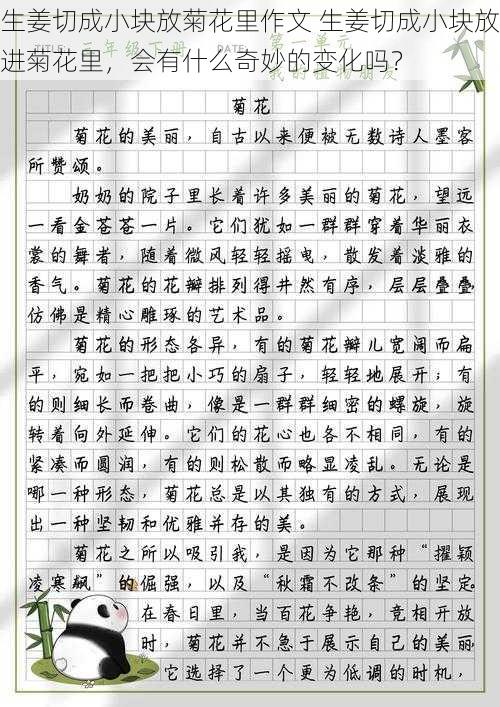 生姜切成小块放菊花里作文 生姜切成小块放
进菊花里，会有什么奇妙的变化吗？
三年级下册
第一单元
我的植物朋友
菊花
菊花的美丽，自古以来便被无数诗人墨客
所赞颂。
奶奶的院子里长着许多美丽的菊花，望远
一看金苍苍一片。它们犹如一群群穿着华丽衣
裳的舞者，随着微风轻轻摇曳，散发着淡雅的
香气。菊花的花瓣排列得井然有序，层层叠叠，
仿佛是精心雕琢的艺术品。
菊花的形态各异，有的菊花瓣儿宽阔而扁
平，宛如一把把小巧的扇子，轻轻地展开；有
的则细长而卷曲，像是一群群细密的螺旋，旋
转着向外延伸。它们的花心也各不相同，有的
紧凑而圆润，有的则松散而略显凌乱。无论是
哪一种形态，菊花总是以其独有的方式，展现
出一种坚韧和优雅并存的美。
菊花之所以吸引我，是因为它那种“擢颖
凌寒飙”的倔强，以及“秋霜不改条”的坚定。
在春日里，当百花争艳，竞相开放
时，菊花并不急于展示自己的美丽，
它选择了一个更为低调的时机，